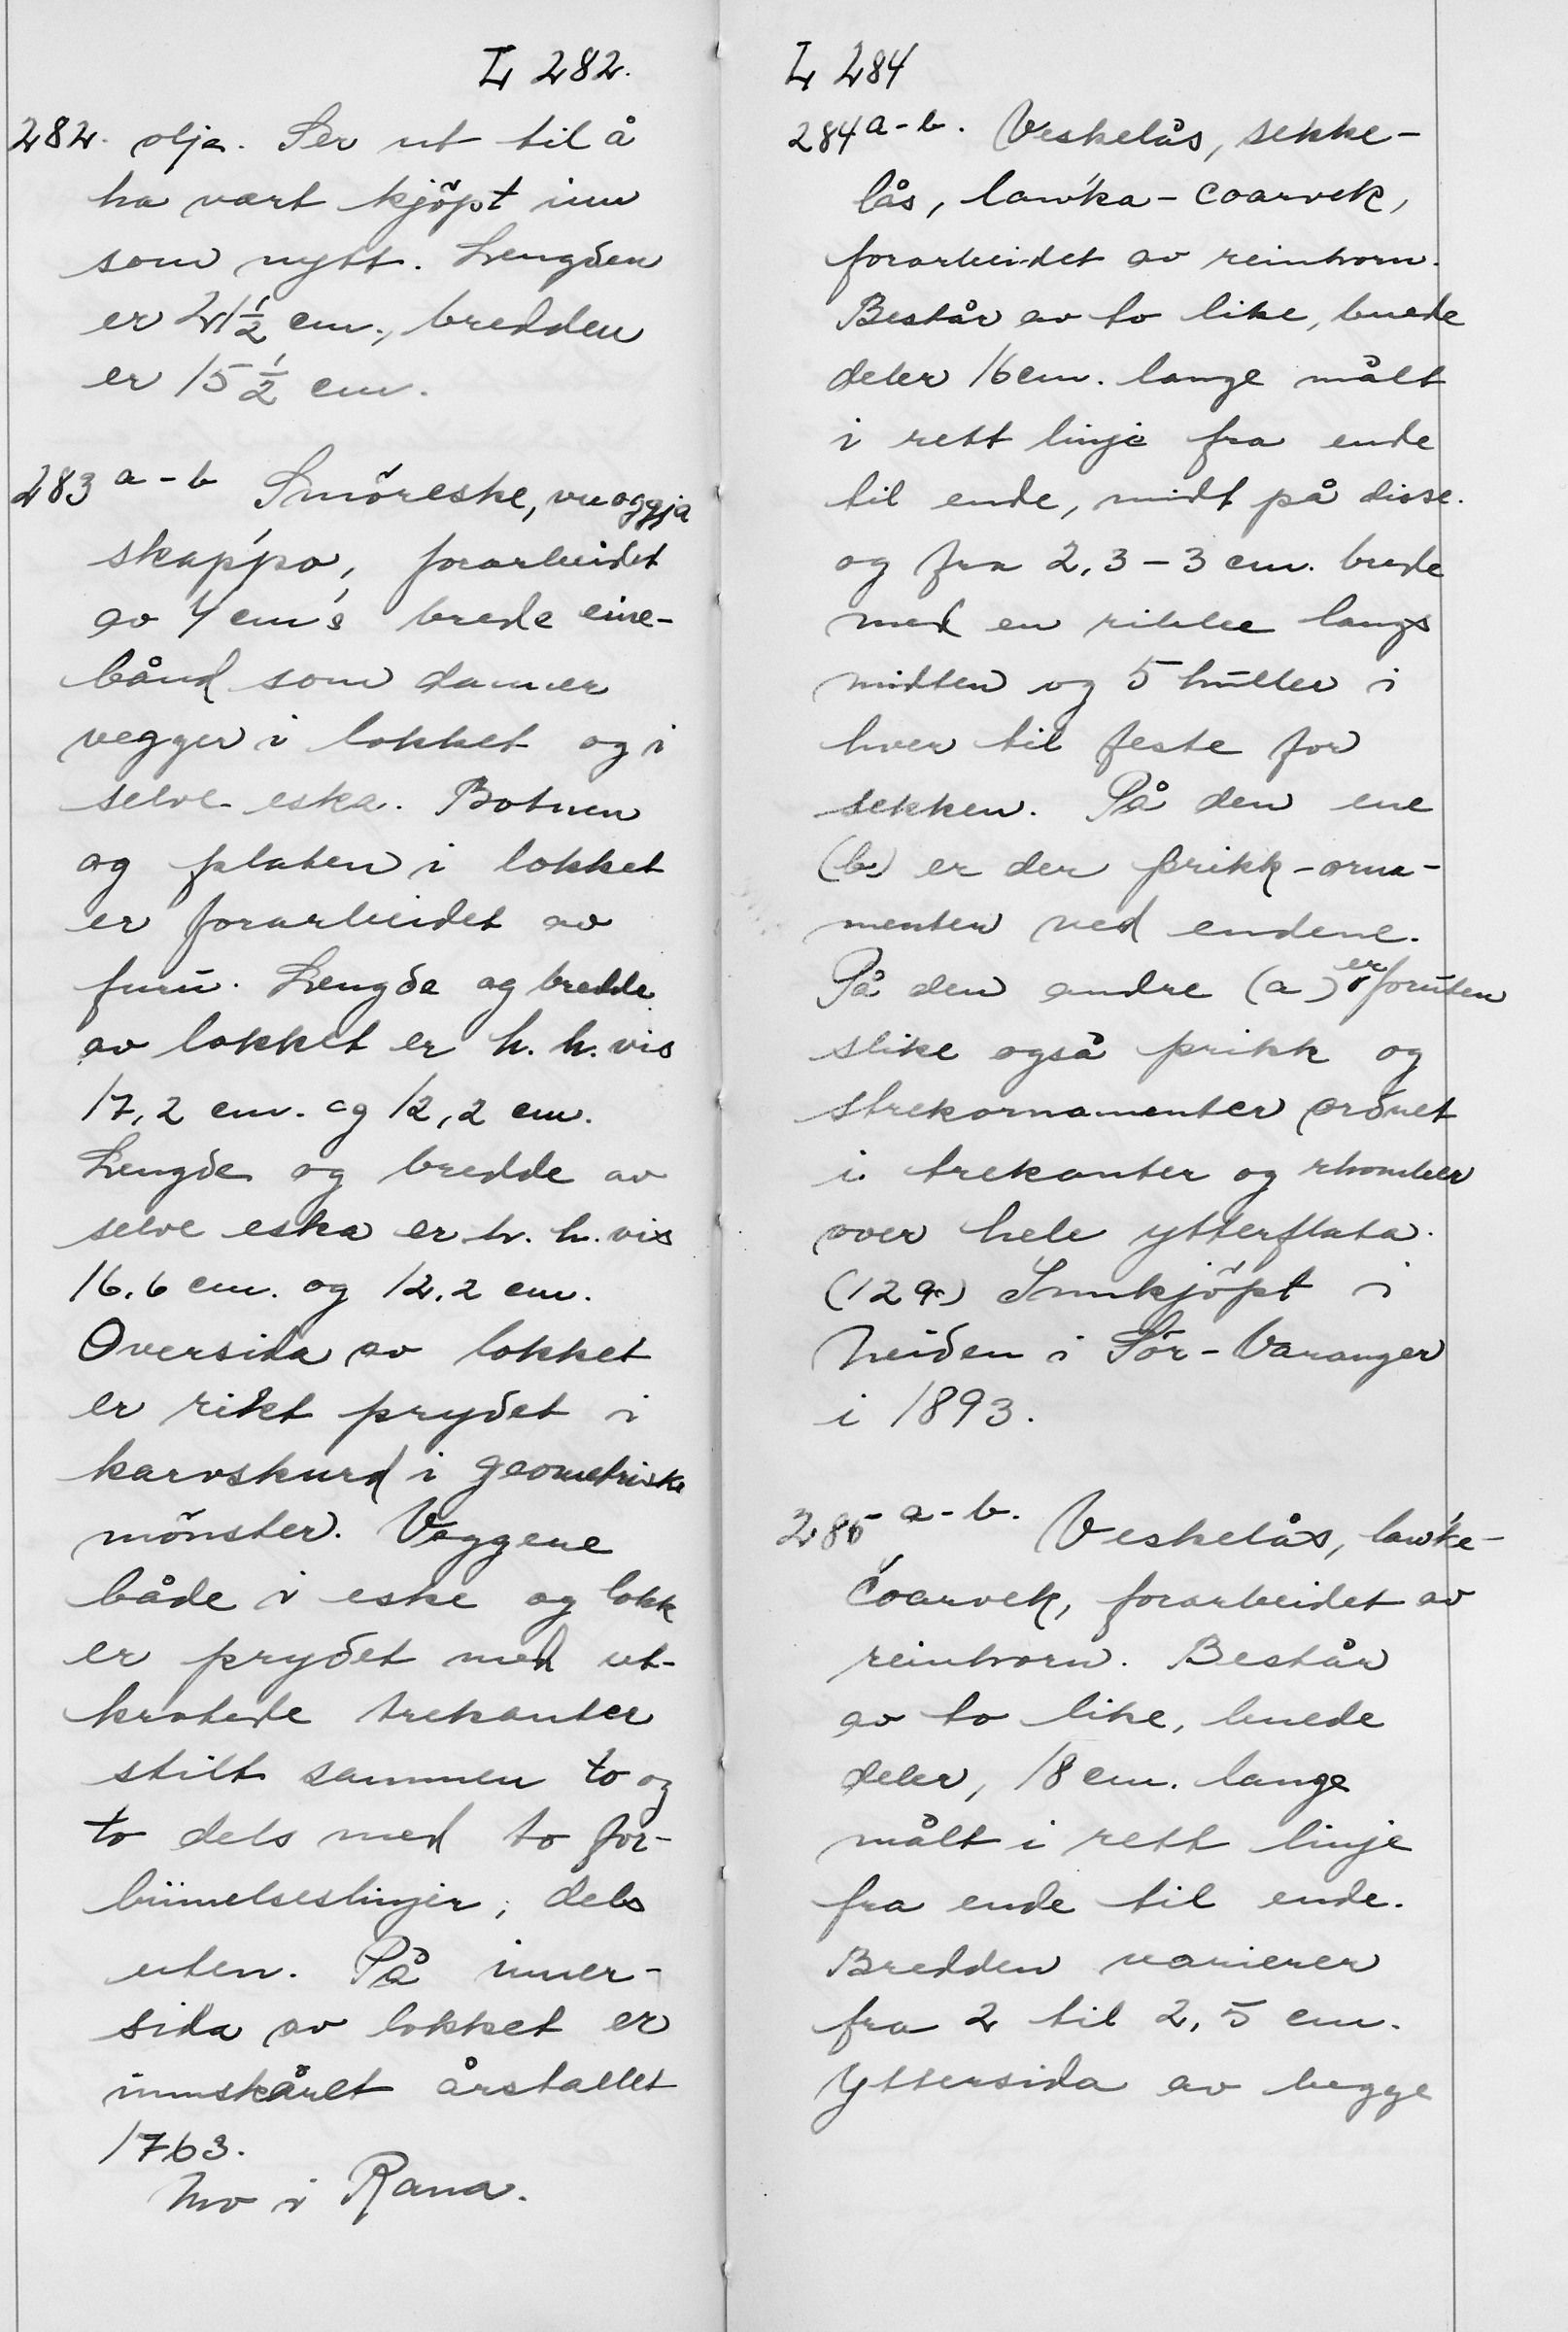 L 282.
282. olje. Ser ut til å
ha vært kjöpt inn
som nytt. Lengden
er 21 1/2 cm., bredden
er 15 1/2 cm.
283 a-b Smöreske, vuoggja
skap'po, forarbeidet
av 4 cm's brede eine-
bånd som danner
vegger i lokket og i
selve eska. Botnen
og platen i lokket
er forarbeidet av
furu. Lengde og bredde
av lokket er h. h. vis
17,2 cm. og 12,2 cm.
Lengde og bredde av
selve eska er h. h. vis
16,6 cm. og 12,2 cm.
Oversida av lokket
er rikt prydet i
karvskurd i geometriske
mönster. Veggene
både i eske og lokk
er prydet med ut-
krotede trekanter
stilt sammen to og
to dels med to for-
binnelseslinjer, dels
uten. På inner-
sida av lokket er
innskåret årstallet
1763.
Mo i Rana.
L 284
284 a-b. Veskelås, sekke-
lås, law'ka-coarvek,
forarbeidet av reinhorn.
Består av to like, buede
deler 16 cm. lange målt
i rett linje fra ende
til ende, midt på disse.
og fra 2,3-3 cm. brede
med en ribbe langs
midten og 5 huller i
hver til feste for
sekken. På den ene
(b) er der prikk-orna-
menter ved endene.
På den andre (a) er foruten
slike også prikk og
strekornamenter ordnet
i trekanter og rhomber
over hele ytterflata.
(129) Innkjöpt i
Neiden i Sör-Varanger
i 1893.
285 a-b. Veskelås, law'ke-
čoarvek, forarbeidet av
reinhorn. Består
av to like, buede
deler, 18 cm. lange
målt i rett linje
fra ende til ende.
Bredden varierer
fra 2 til 2,5 cm.
Yttersida av begge